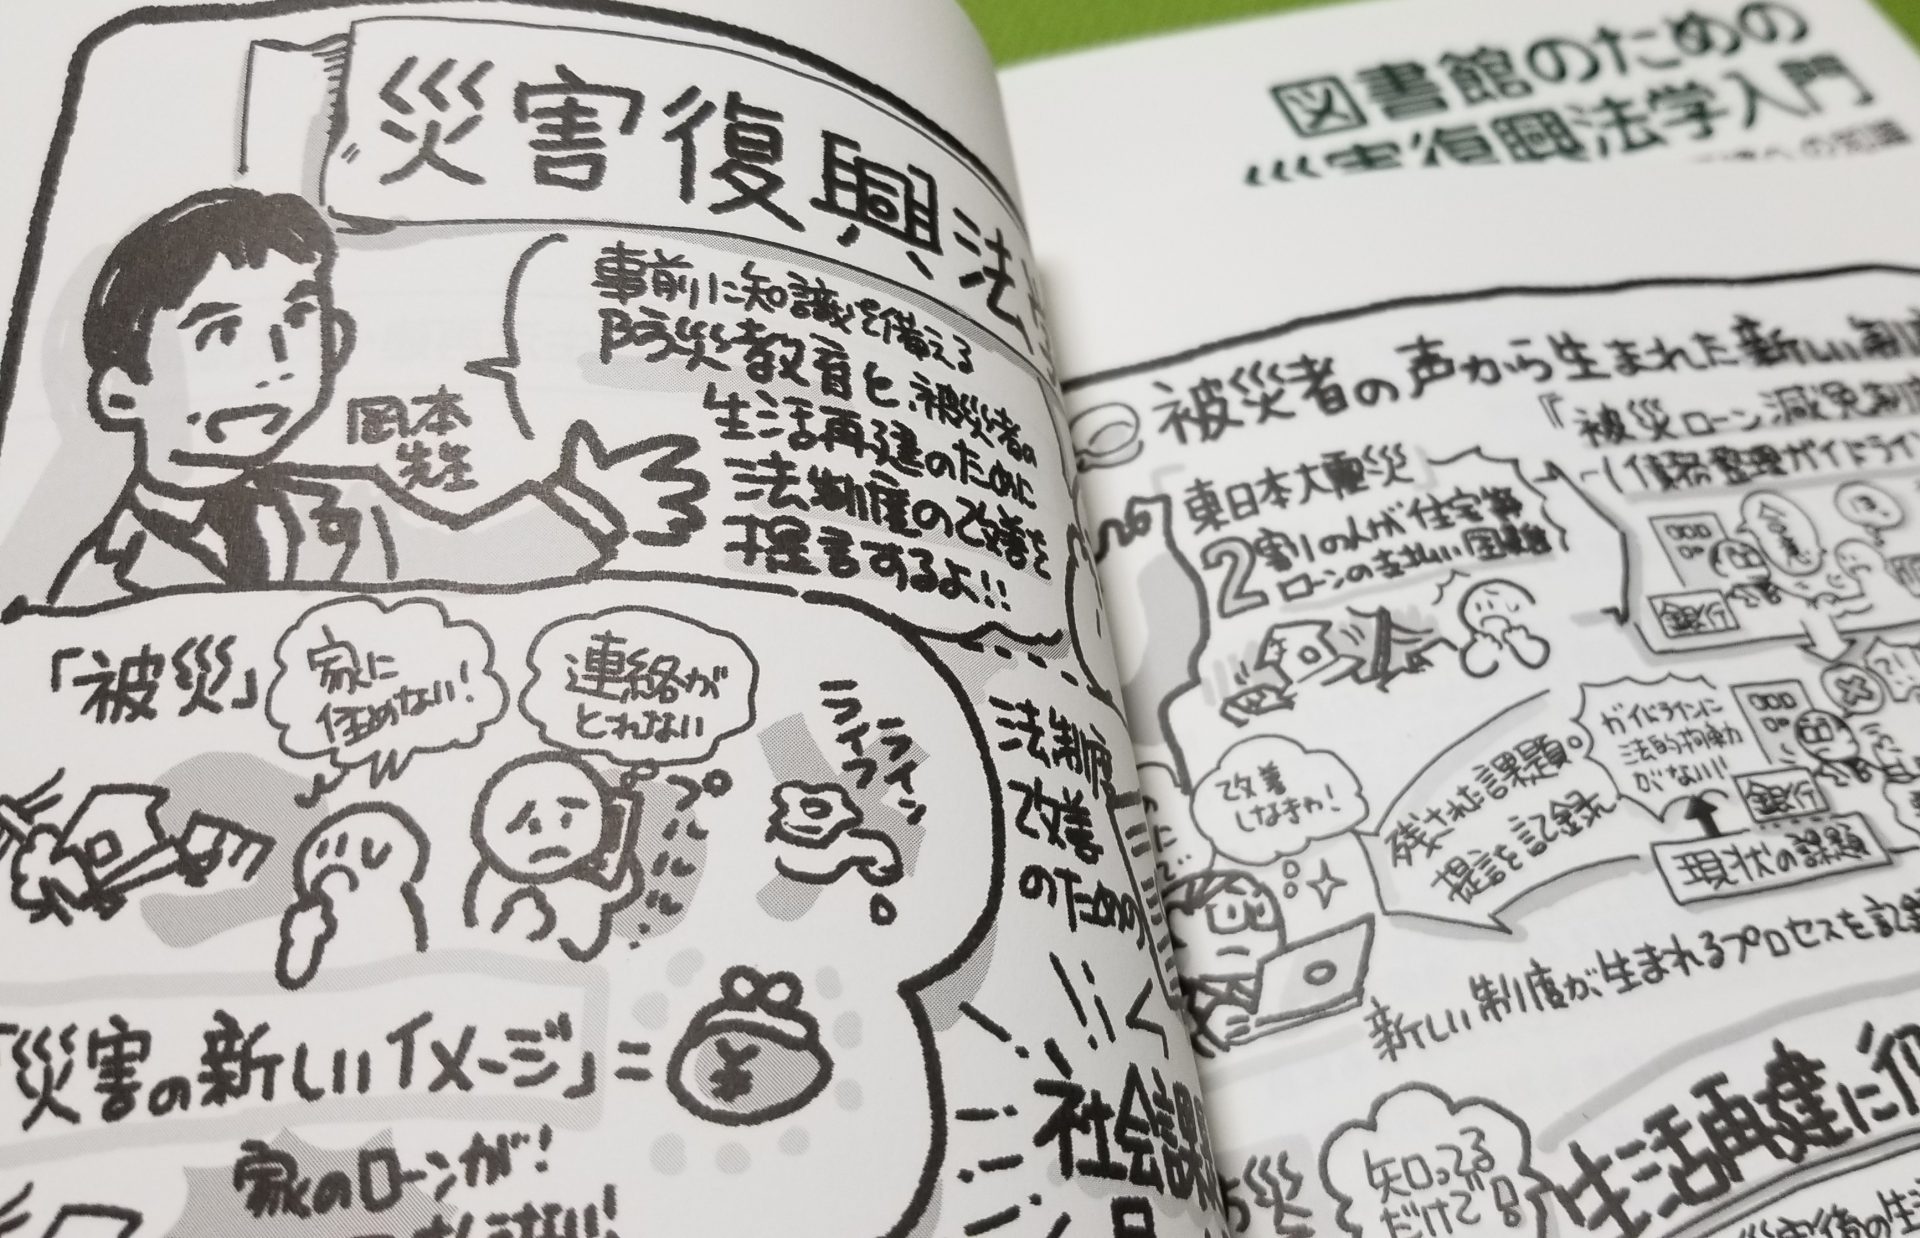 災害復興法
事前に知識を備える
防災教育と、被災者の
生活再建のために
法制度の改善を
提言するよ!!
岡本
先生
「被災」
家に
住めない!
連絡が
とれない
プルルル
ライフ
ライン
「災害の新しいイメージ」=
¥
家のローンが!
法制度
改善
のための
社会課
図書館のための
災害復興法学入門
被災者の声から生まれた新しい制
『被災ローン減免制度
東日本大震災
2割の人が住宅等
ローンの支払い困難
債務整理ガイドライン
合意
銀行
改善
しなきゃ!
残された課題。
提言を記録
ガイドラインに
法的拘束力
がない!
銀行
現状の課題
新しい制度が生まれるプロセスを記
災
知ってる
だけで
生活再建に
災害後の生